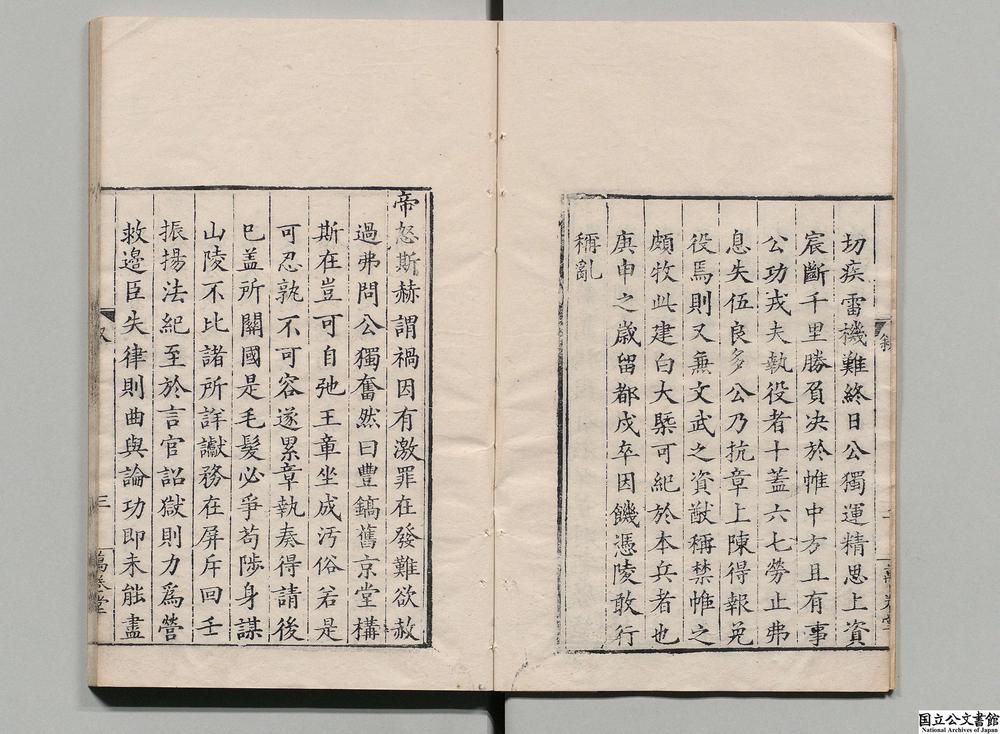 切疾雷機難終日公獨運精思上資
宸斷千里勝負决於帷中方且有事
公功戎夫執役者十蓋六七勞止弗
息失伍良多公乃抗章上陳得報免
役焉則又無文武之資猷稱禁帷之
頗牧此建白大槩可紀於本兵者也
庚申之歲留都戍卒因饑憑陵敢行
稱亂
帝怒斯赫謂禍因有激罪在發難欲赦
過弗問公獨奮然曰豐鎬舊京堂構
斯在豈可自弛王章坐成汚俗若是
可忍孰不可容遂累章執奏得請後
已盖所關國是毛髮必爭苟陟身謀
山陵不比諸所詳讞務在屏斥回壬
振揚法紀至於言官詔獄則力爲營
救邉臣失律則曲與論功即未能盡
三
萬卷堂
国立公文書館
National Archives of Japan